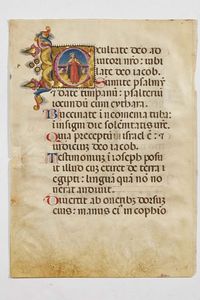 Exultate deo ad
iutori nr̄o: iubi
late deo iacob.
Sumite psalmū
& date timpanū: psalteriū
iocundū cum cythara.
Buccinate i neomenia tuba:
in insigni die solēnitatis
Quia preceptū i israel ē: &
iudiciū deo iacob.
Testimoniū i ioseph posu
it illud cū exiret de terra e
gipti: linguā quā nō no
uerat audiuit.
Diuertit ab oneribus dorsuz
eius: manus ei in cophīo